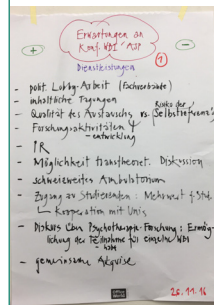 Erwartungen an
Konf. WDI / ASP
+
-
Dienstleistungen
1
- polit. Lobby-Arbeit (Fachverbände)
- inhaltliche Tagungen
- Qualität des Austauschs vs. Risiko der "Selbstreferenz"
- Forschungsaktivitäten
- entwicklung
- PR
- Möglichkeit transtheoret. Diskussion
- schweizweites Ambulatorium
- Zugang zu Studierenden: Mehrwert f. Stud.
↳ Kooperation mit Unis
- Diskurs über Psychotherapie-Forschung: Ermög-
lichung der Teilnahme für einzelne WDI
- gemeinsame Akquise
26.11.16